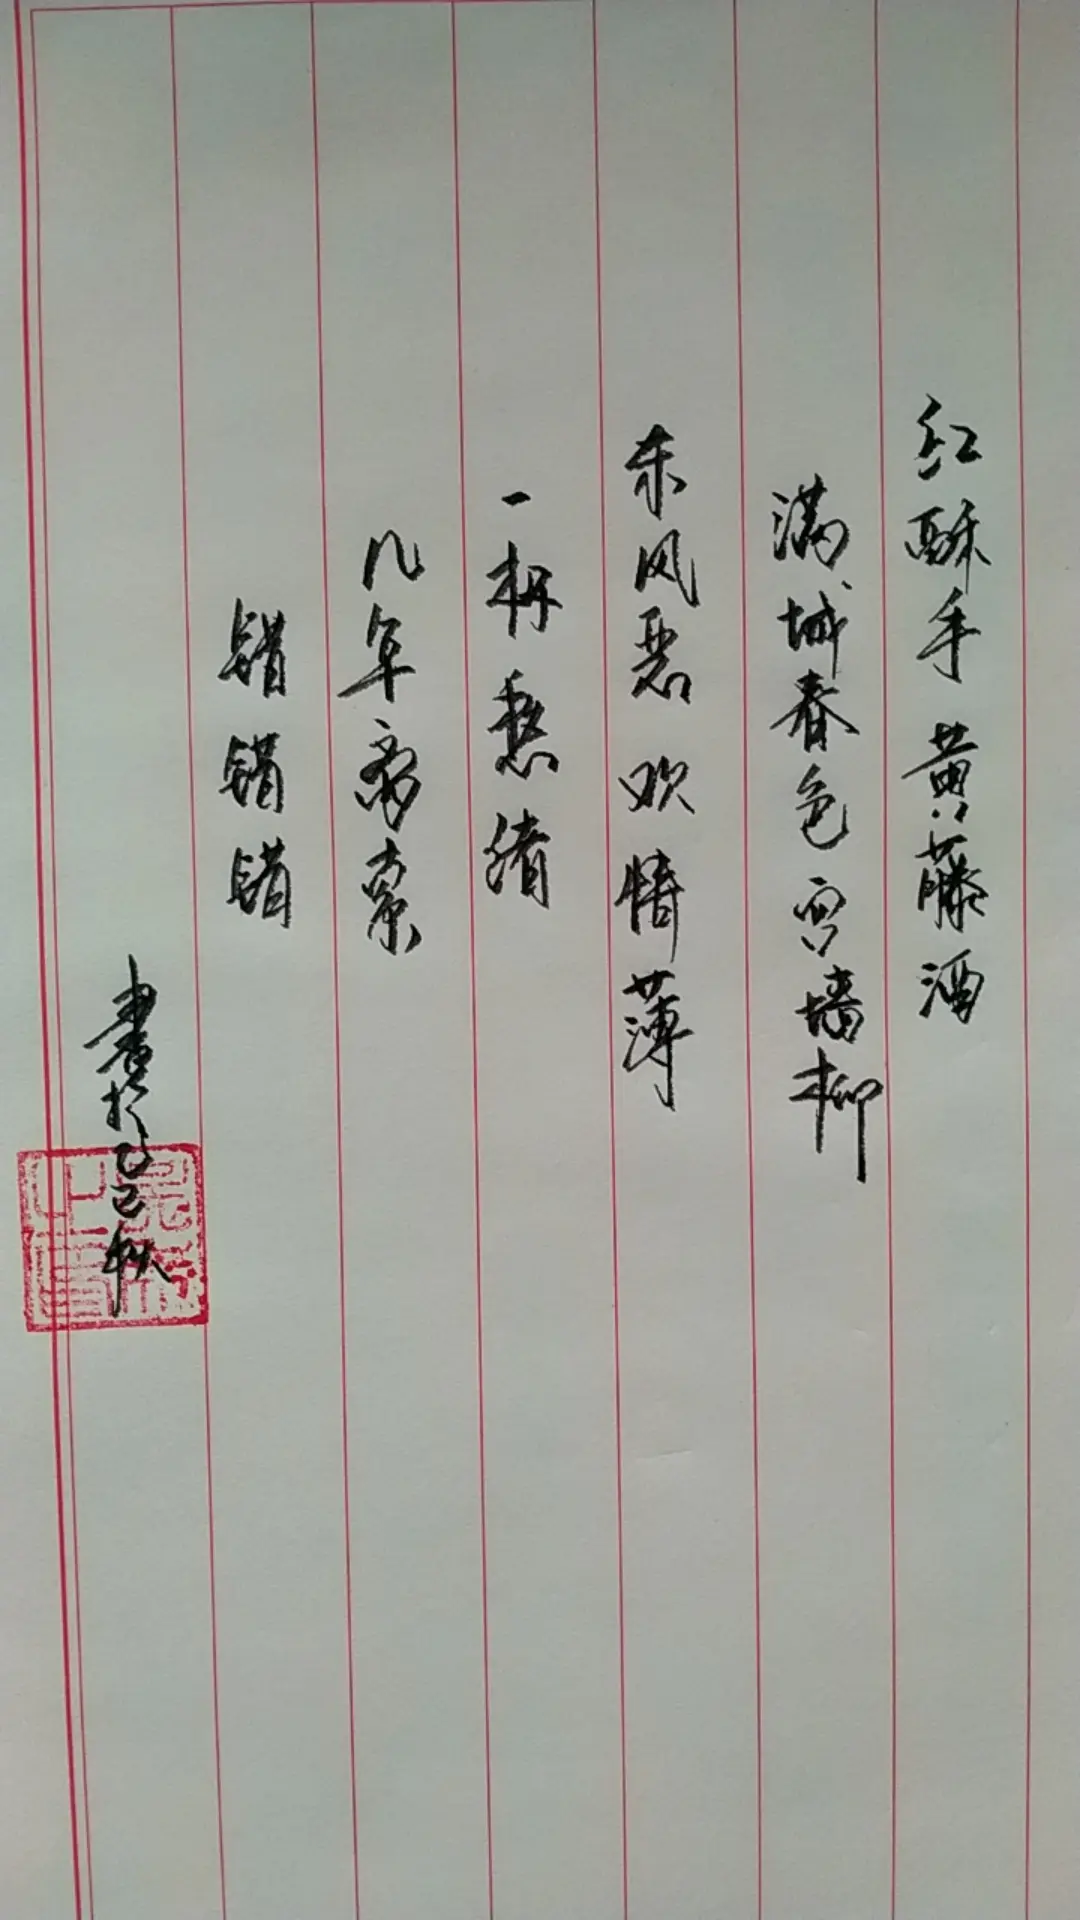 红酥手 黄藤酒
满城春色宫墙柳
东风恶 欢情薄
一杯愁绪
几年离索
错错错
書於乙巳秋